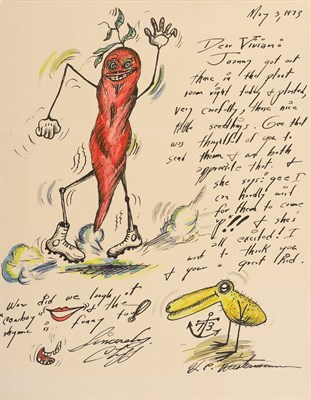 May 3, 1973
Dear Viviani
Joanny got out
there in the plant
room right today & planted,
very carefully, those nice
little seedlings. Gee that
was thoughtful of you to
send them & we both
appreciate that. &
she says: gee I
can hardly wait
for them to come
up!!! & she's
all excited! I
want to thank you
& your a great kid.
Wow did we laugh at
"Cowboy" & the
rhyme is funny to!
Sincerely
Cliff
5/73
H.C. Westermann